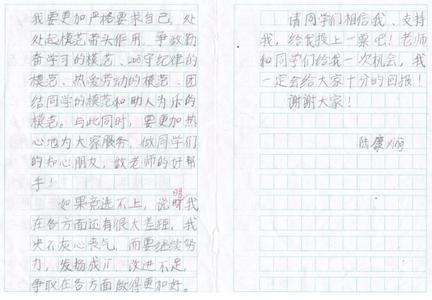 我要更加严格要求自己，处
处起模范带头作用，争做勤
奋学习的模范、遵守纪律的
模范、热爱劳动的模范、团
结同学的模范和助人为乐的
模范。与此同时，要更加热
心地为大家服务，做同学们
的知心朋友，做老师的好帮
手！
如果竞选不上，说明我
在各方面还有很大差距，我
决不灰心丧气，而要继续努
力，发扬成汇，改进不足，
争取在各方面做得更加好。
请同学们相信我、支持
我，给我投上一票吧！老师
和同学们给我一次机会，我
一定会给大家十分的回报！
谢谢大家！
陆